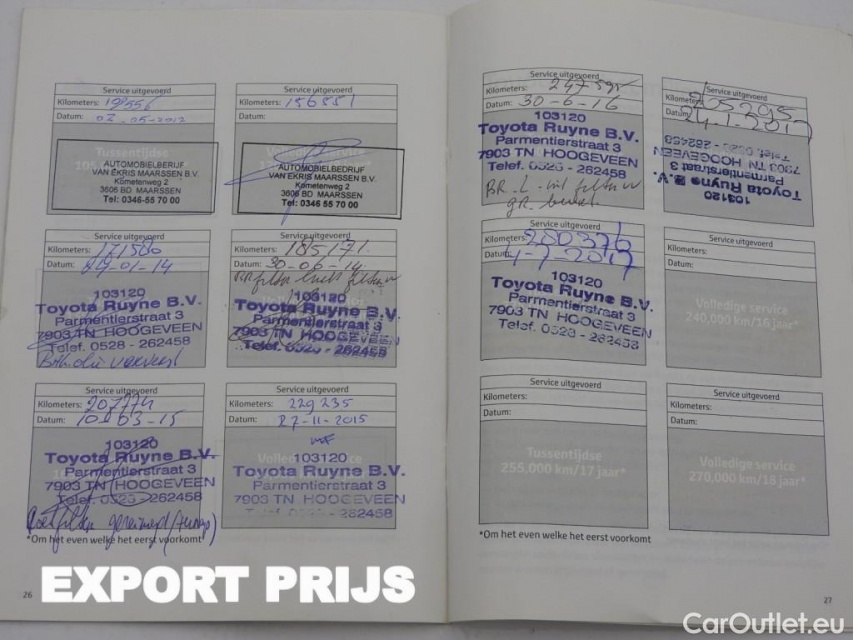 Service uitgevoerd
Kilometers:
Datum: 02-05-2012
Tussentijdse
AUTOMOBIELBEDRIJF
VAN EKRIS MAARSSEN B.V.
Kometenweg 2
3606 BD MAARSSEN
Tel: 0346 55 70 00
Service uitgevoerd
Kilometers: 156851
Datum:
AUTOMOBIELBEDRIJF
VAN EKRIS MAARSSEN B.V.
Kometenweg 2
3606 BD MAARSSEN
Tel: 0346 55 70 00
Service uitgevoerd
Kilometers: 171580
Datum: 24-01-14
103120
Toyota Ruyne B.V.
Parmentierstraat 3
7903 TN HOOGEVEEN
Telef. 0528 - 262458
Service uitgevoerd
Kilometers: 185171
Datum: 30-06-14
103120
Toyota Ruyne B.V.
Parmentierstraat 3
7903 TN HOOGEVEEN
Telef. 0528 - 262458
Service uitgevoerd
Kilometers: 207774
Datum: 10-03-15
103120
Toyota Ruyne B.V.
Parmentierstraat 3
7903 TN HOOGEVEEN
Telef. 0528 - 262458
Service uitgevoerd
Kilometers: 229235
Datum: 27-11-2015
103120
Toyota Ruyne B.V.
Parmentierstraat 3
7903 TN HOOGEVEEN
Telef. 0528 - 262458
*Om het even welke het eerst voorkomt
26
Service uitgevoerd
Kilometers:
Datum: 30-6-16
103120
Toyota Ruyne B.V.
Parmentierstraat 3
7903 TN HOOGEVEEN
Telef. 0528 - 262458
Kilometers:
Datum:
103120
Toyota Ruyne B.V.
Parmentierstraat 3
7903 TN HOOGEVEEN
Telef. 0528 - 262458
Service uitgevoerd
Kilometers: 280376
Datum:
103120
Toyota Ruyne B.V.
Parmentierstraat 3
7903 TN HOOGEVEEN
Telef. 0528 - 262458
Service uitgevoerd
Kilometers:
Datum:
Volledige service
240,000 km/16 jaar*
Service uitgevoerd
Kilometers:
Datum:
Tussentijdse
255,000 km/17 jaar*
Service uitgevoerd
Kilometers:
Datum:
Volledige service
270,000 km/18 jaar*
*Om het even welke het eerst voorkomt
27
EXPORT PRIJS
CarOutlet.eu